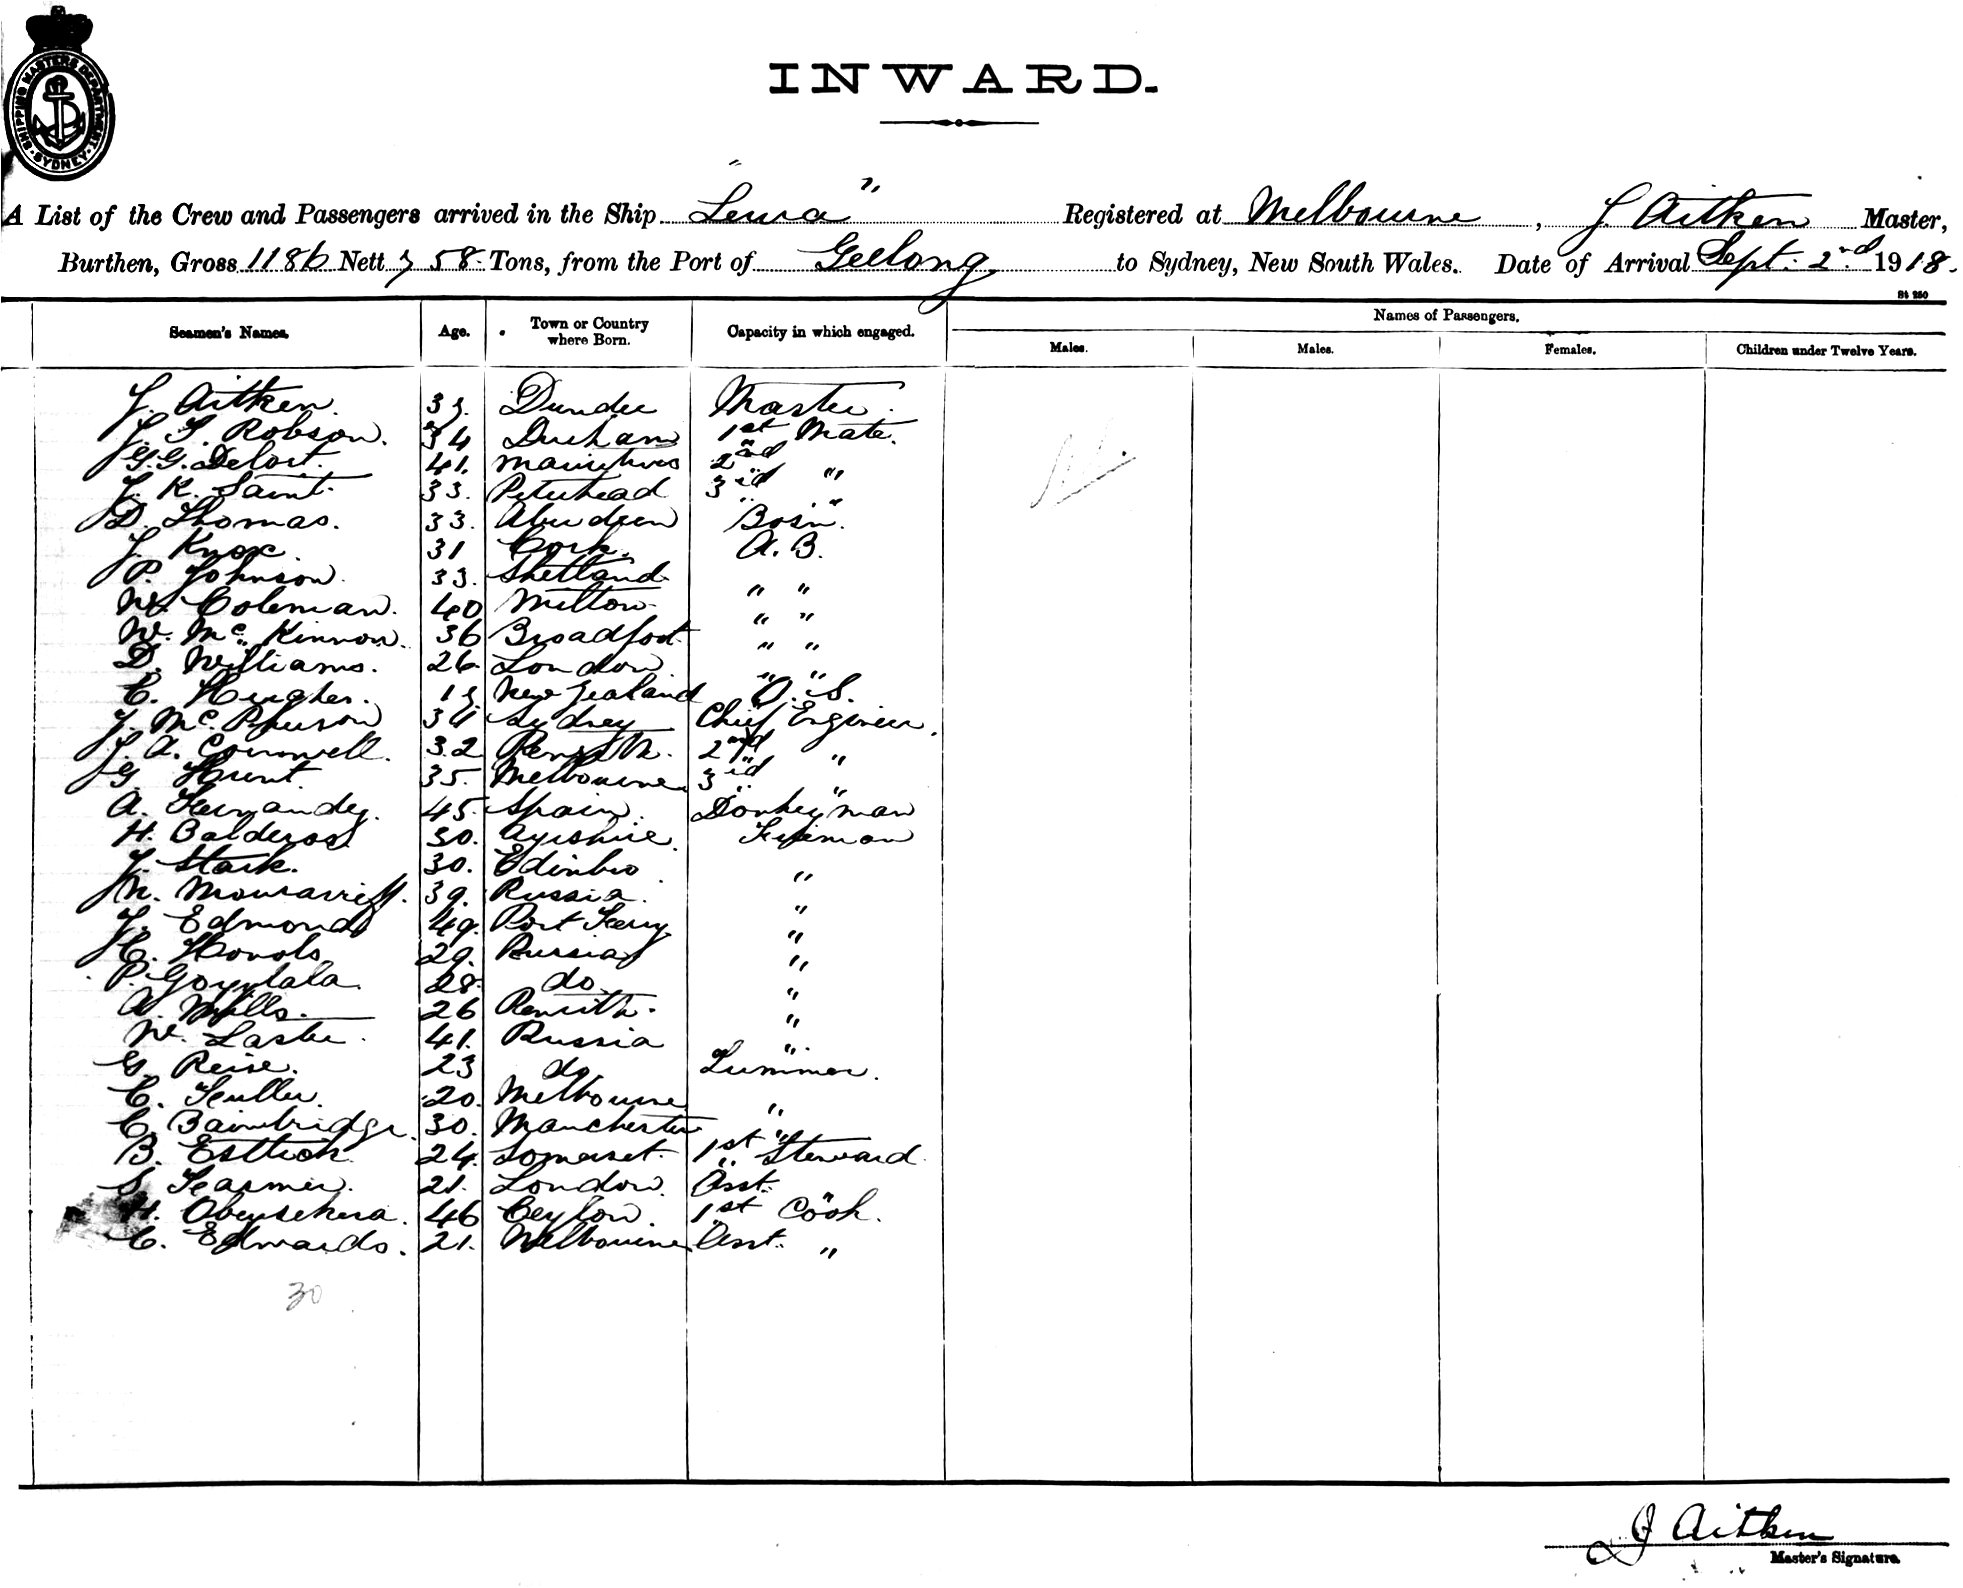 SHIPPING MASTERS DEPARTMENT SYDNEY
INWARD.
A List of the Crew and Passengers arrived in the Ship "Leura" Registered at Melbourne, J. Aitken Master,
Burthen, Gross 1186 Nett 758 Tons, from the Port of Geelong to Sydney, New South Wales. Date of Arrival Sept. 2nd 1918.
St 250
Seamen's Names. Age. Town or Country where Born. Capacity in which engaged. Names of Passengers.
Males. Males. Females. Children under Twelve Years.
J. Aitken. Dundee Master.
J. G. Robson. 34 Durham 1st Mate.
G.G. 41. Mauritius 2nd "
J. R. Saint. 33. Peterhead 3rd "
D. Thomas. 33. Aberdeen Bosn.
J. Knox. 31 Cork. A. B.
P. Johnson. 33. Shetland " "
W. Coleman. 40 Milton " "
W. McKinnon. 36 Broadfoot " "
D. Williams. 26 London " "
C. Hughes. New Zealand O. S.
J. McPherson 34 Sydney Chief Engineer.
J. A. Cornwell. 32 Penrith. 2nd "
G. Hunt. 35. Melbourne 3rd "
A. Fernandez. 45. Spain. Donkeyman
H. Balderos 30. Ayrshire. Fireman
J. Stark. 30. Edinbro "
N. 39. Russia. "
J. Edmonds 49. Port Ferry "
C. 29. Russia "
P. 28. do "
A. Mills. 26 Penrith. "
W. Laste. 41. Russia "
G. Reise. 23 do Trimmer.
C. 20. Melbourne "
C. Bainbridge. 30. Manchester "
B. Esttick 24. Somerset. 1st Steward.
S. 21. London. Asst. "
H. Obeysekera. 46 Ceylon. 1st Cook.
C. Edwards. 21. Melbourne Asst. "
30
J Aitken
Master's Signature.